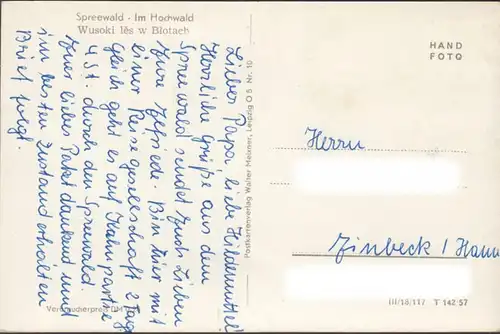 Spreewald - Im Hochwald
Wusoki lěs w Błotach
Lieber Papa, liebe Heidemutter!
Herzliche Grüße aus dem
Spreewald sendet Euch Lieben
Eure Bin hier mit
einer Reisegesellschaft 2 Tage
gleich geht es auf Kahnpartie
4 St. durch den Spreewald.
Euer liebes Paket dankend und
im besten Zustand erhalten
Brief folgt.
Verbraucherpreis DM
Postkartenverlag Walter Meixner, Leipzig O 5 Nr. 10
HAND
FOTO
Herrn
Einbeck / Hann
III/18/117 T 142/57